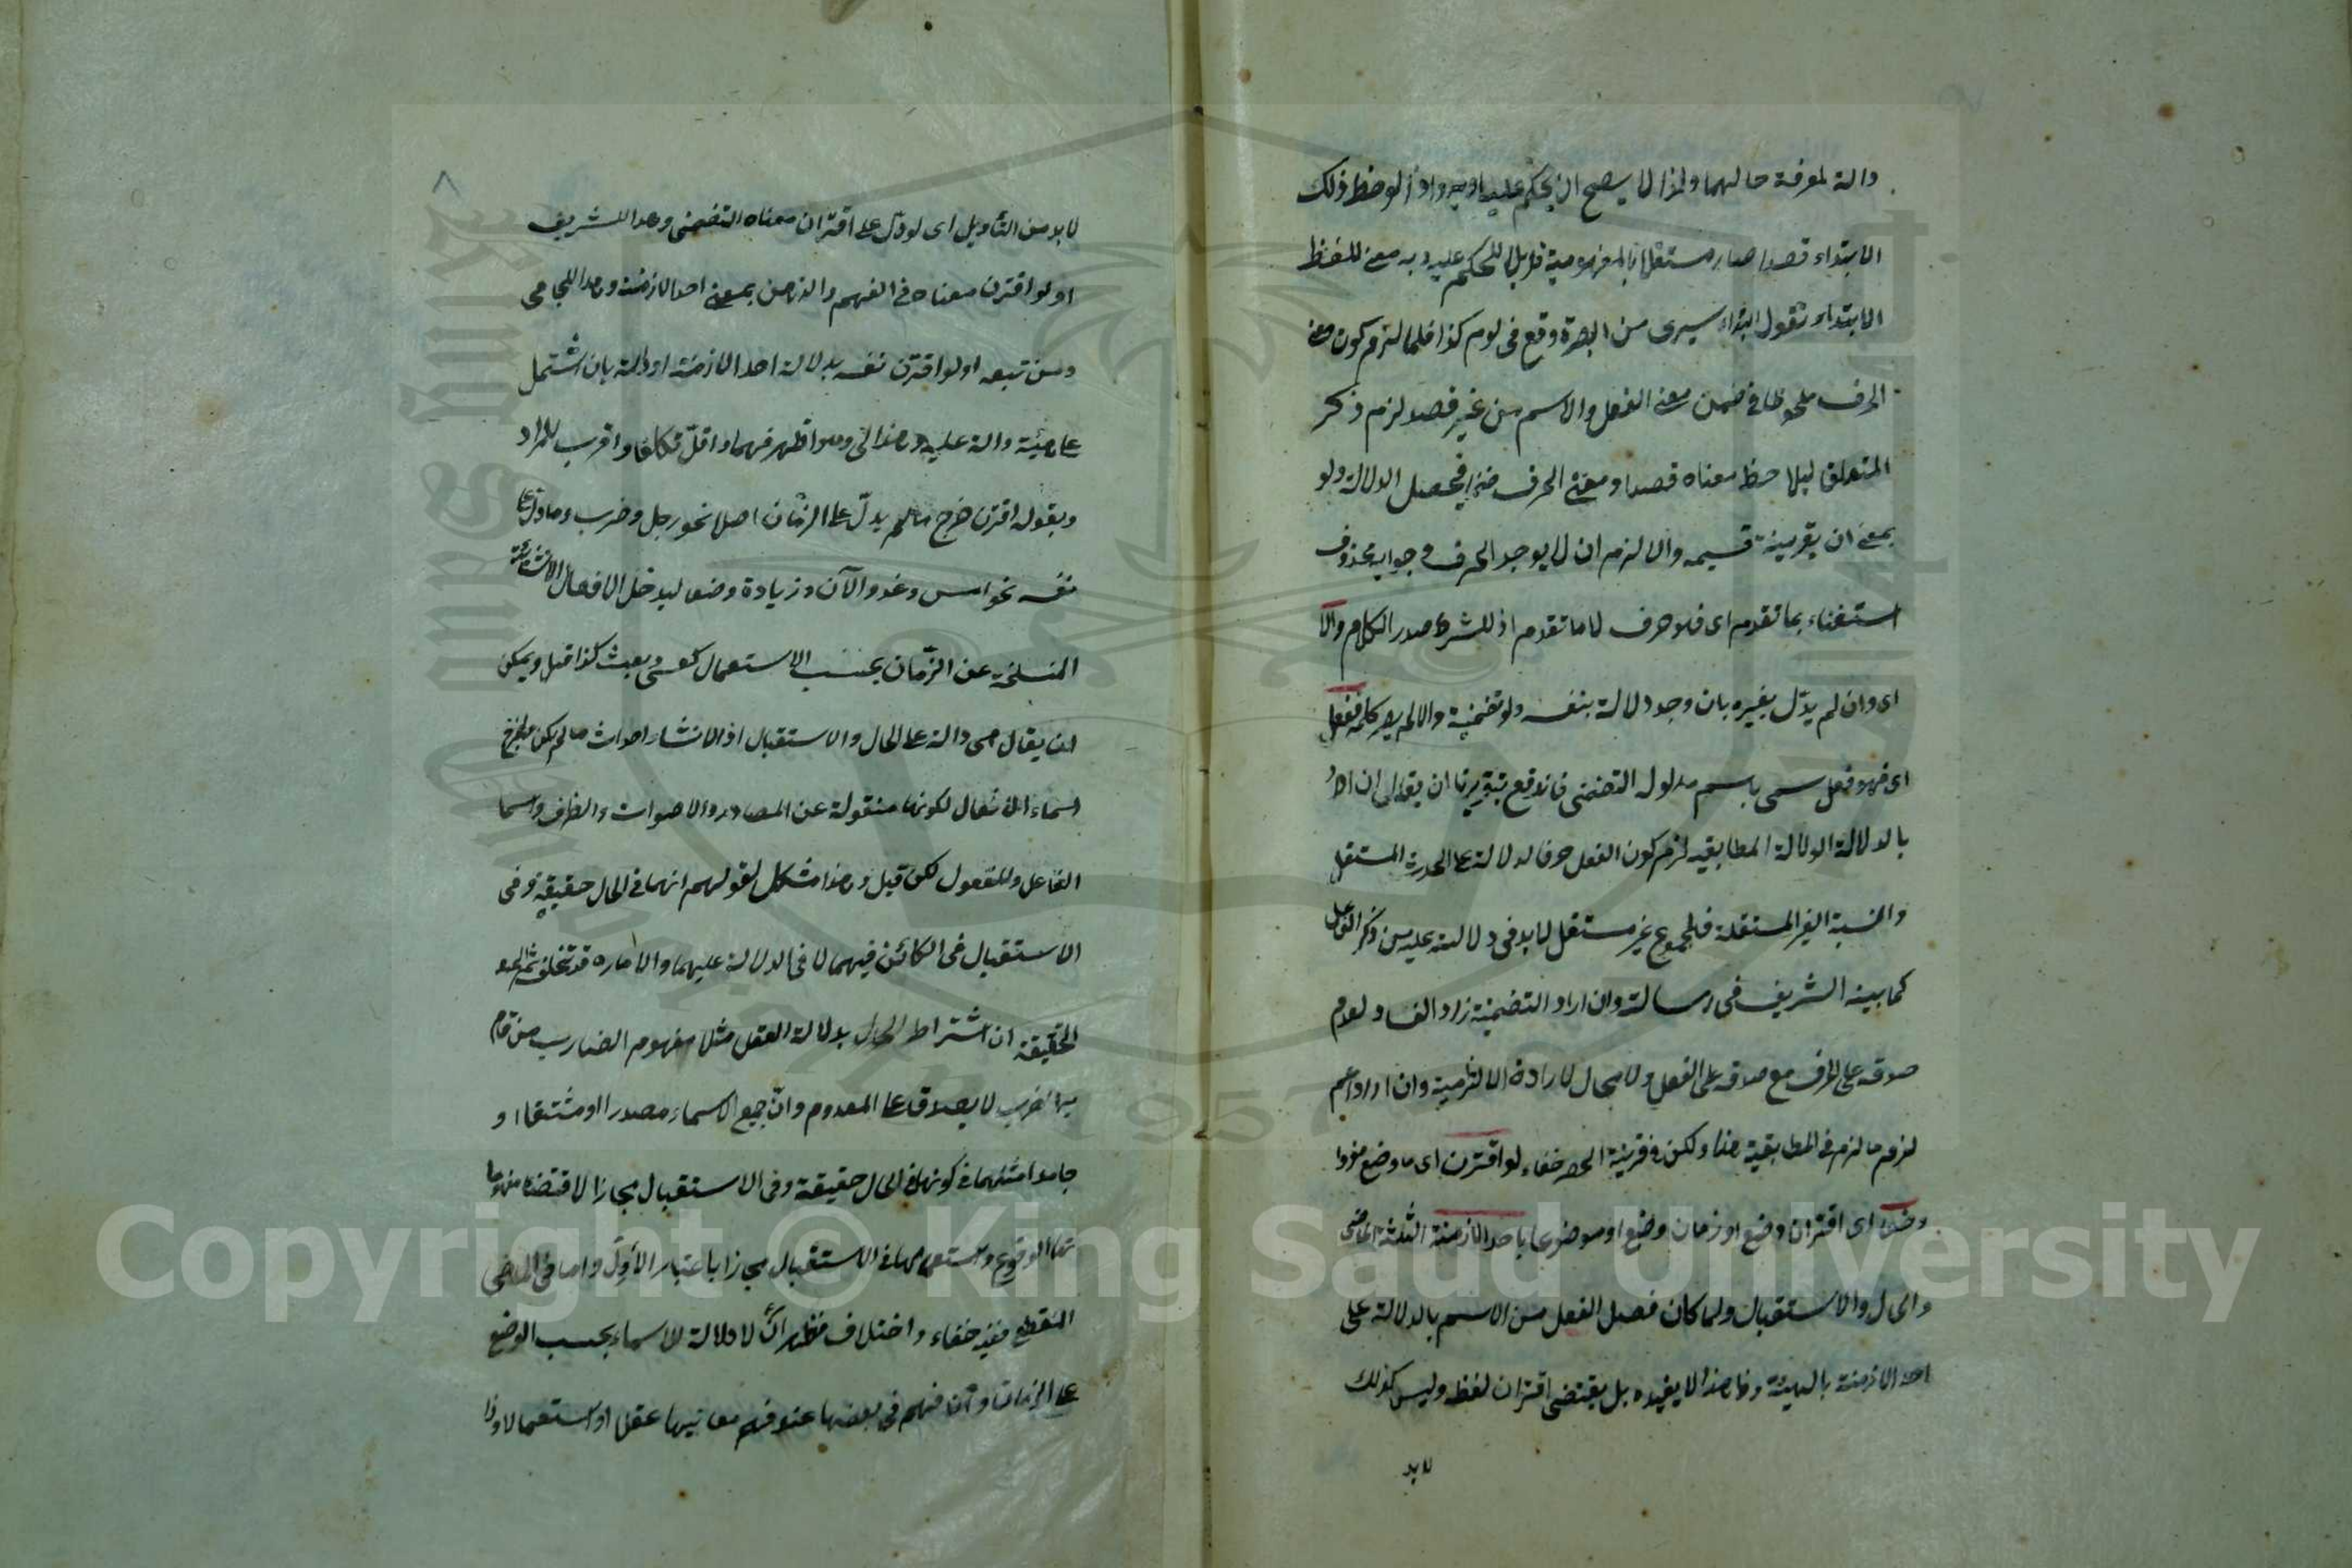 دالة لمعرفة حالهما ولهذا لا يصح ان يحكم عليه او به واذا لوحظ ذلك
الابتداء قصدا صار مستقلا بالمفهومية قابلا للحكم عليه وبه معنى للفظ
الابتداء تقول ابتداء سيرى من البصرة وقع فى يوم كذا فلما لزم كون معنى
الحرف ملحوظا في ضمن معنى الفعل والاسم من غير قصد لزم ذكر
المتعلق ليلاحظ معناه قصدا ومعنى الحرف ضمنا فيحصل الدلالة ولو
بمعنى ان بقرينة قسيمه والا لزم ان لا يوجد الحرف وجوابه محذوف
استغناء بما تقدم اى فلا حرف لا ما تقدم اذ للشرط صدر الكلام والا
اى وان لم يدل بغيره بان وجد دلالة بنفسه ولو تضمنية والا لم يصر كلمة ففعل
اى فهو فعل سمى باسم مدلوله التضمنى فاندفع بتقريرنا ان يقال ان اراد
بالدلالة الدلالة المطابقيه لزم كون الفعل حرفا لدلالة على الحدث المستقل
والنسبة الغير المستقلة فالمجموع غير مستقل لا بد فى دلالته عليه من ذكر الفاعل
كما بينه الشريف فى رسالته وان اراد التضمنية زاد الفساد لعدم
صدقه على الحرف مع صدقه على الفعل ولا مجال لارادة الالتزامية وان اراد اعم
لزم ما لزم فى المطابقية هذا ولكن فى قرينة الحد خفاء لو اقترن اى ما وضع مفردا
وضعا اى اقتران وضع او زمان وضع او موضوعا باحد الازمنة الثلثة الماضى
والحال والاستقبال ولما كان فصل الفعل من الاسم بالدلالة على
احد الازمنة بالهيئة وظاهر هذا لا يفيده بل يقتضى اقتران لفظه وليس كذلك
لا بد
٨
لا بد من التأويل اى لو دل على اقتران معناه التضمنى وهذا للشريف
او لو اقترن معناه فى الفهم والذهن بمعنى احد الازمنة وهذا للجامى
ومن تبعه او لو اقترن نفسه بدلالة احد الازمنة او دلالة بان اشتمل
على هيئة دالة عليه وهذا لى وهو اظهر فهما واقل تكلفا واقرب للمراد
وبقوله اقترن خرج ما لم يدل على الزمان اصلا نحو رجل وضرب وما دل على
نفسه نحو امس وغد والآن وزيادة وضعا ليدخل الافعال الانشائية
المنسلخة عن الزمان بحسب الاستعمال كعسى وبعت كذا قيل ويمكن
ان يقال هى دالة على الحال والاستقبال اذ الانشاء احداث ما لم يكن فليخرج
اسماء الافعال لكونها منقولة عن المصادر والاصوات والظرف واسما
الفاعل وللمفعول لكن قيل وهذا مشكل لقولهم انهما فى الحال حقيقة وفى
الاستقبال فى الكائن فيهما لا فى الدلالة عليهما والاماره قد تتخلف ثم الحق
الحقيقة ان اشتراط الحال بدلالة العقل مثلا مفهوم الضارب من قام
به الضرب لا يصدق على المعدوم وان جميع الاسماء مصدرا او مشتقا او
جامدا مثلهما فى كونها فى الحال حقيقة وفى الاستقبال مجازا لاقتضاء مفهومها
الوقوع واستعمالها فى الاستقبال مجازا باعتبار الاول واما فى الماضى
المنقطع ففيه خفاء واختلاف فظهر ان لا دلالة للاسماء بحسب الوضع
على الزمان وان فهم فى بعضها عند فهم معانيها عقلا او استعمالا واذا
Copyright © King Saud University
King Saud University
1957